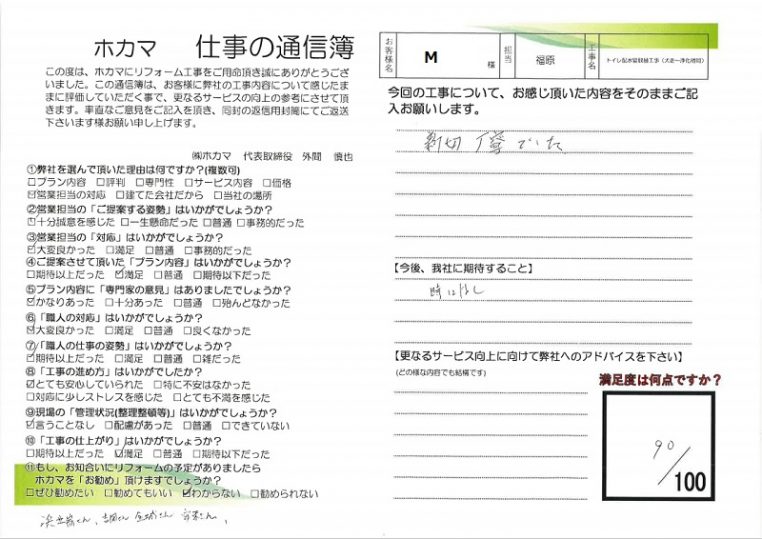 ホカマ 仕事の通信簿
この度は、ホカマにリフォーム工事をご用命頂き誠にありがとうござ
いました。この通信簿は、お客様に弊社の工事内容について感じたま
まに評価していただく事で、更なるサービスの向上の参考にさせて頂
きます。率直なご意見をご記入を頂き、同封の返信用封筒にてご返送
下さいます様お願い申し上げます。
㈱ホカマ 代表取締役 外間 慎也
①弊社を選んで頂いた理由は何ですか?(複数可)
□プラン内容 □評判 □専門性 □サービス内容 □価格
☑営業担当の対応 □建てた会社だから □当社の場所
②営業担当の「ご提案する姿勢」はいかがでしょうか?
☑十分誠意を感じた □一生懸命だった □普通 □事務的だった
③営業担当の「対応」はいかがでしょうか?
☑大変良かった □満足 □普通 □事務的だった
④ご提案させて頂いた「プラン内容」はいかがでしょうか?
□期待以上だった ☑満足 □普通 □期待以下だった
⑤プラン内容に「専門家の意見」はありましたでしょうか?
☑かなりあった □十分あった □普通 □殆んどなかった
⑥「職人の対応」はいかがでしょうか?
☑大変良かった □満足 □普通 □良くなかった
⑦「職人の仕事の姿勢」はいかがでしょうか?
☑期待以上だった □満足 □普通 □雑だった
⑧「工事の進め方」はいかがでしたか?
☑とても安心していられた □特に不安はなかった
□対応に少しストレスを感じた □とても不満を感じた
⑨現場の「管理状況(整理整頓等)」はいかがでしょうか?
☑言うことなし □配慮があった □普通 □できていない
⑩「工事の仕上がり」はいかがでしょうか?
□期待以上だった ☑満足 □普通 □期待以下だった
⑪もし、お知合いにリフォームの予定がありましたら
ホカマを「お勧め」頂けますでしょうか?
□ぜひ勧めたい □勧めてもいい ☑わからない □勧められない
お客様名 M 様 担当 福原 工事名
今回の工事について、お感じ頂いた内容をそのままご記
入お願いします。
親切 丁寧でした
【今後、我社に期待すること】
特になし
【更なるサービス向上に向けて弊社へのアドバイスを下さい】
(どの様な内容でも結構です)
満足度は何点ですか?
90
/100